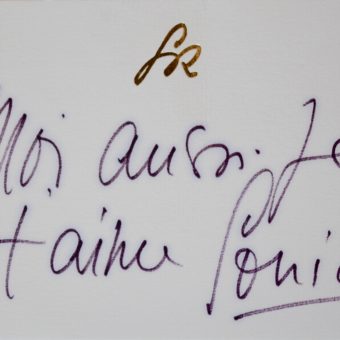 SR
Moi aussi. Je
t'aime Sonia